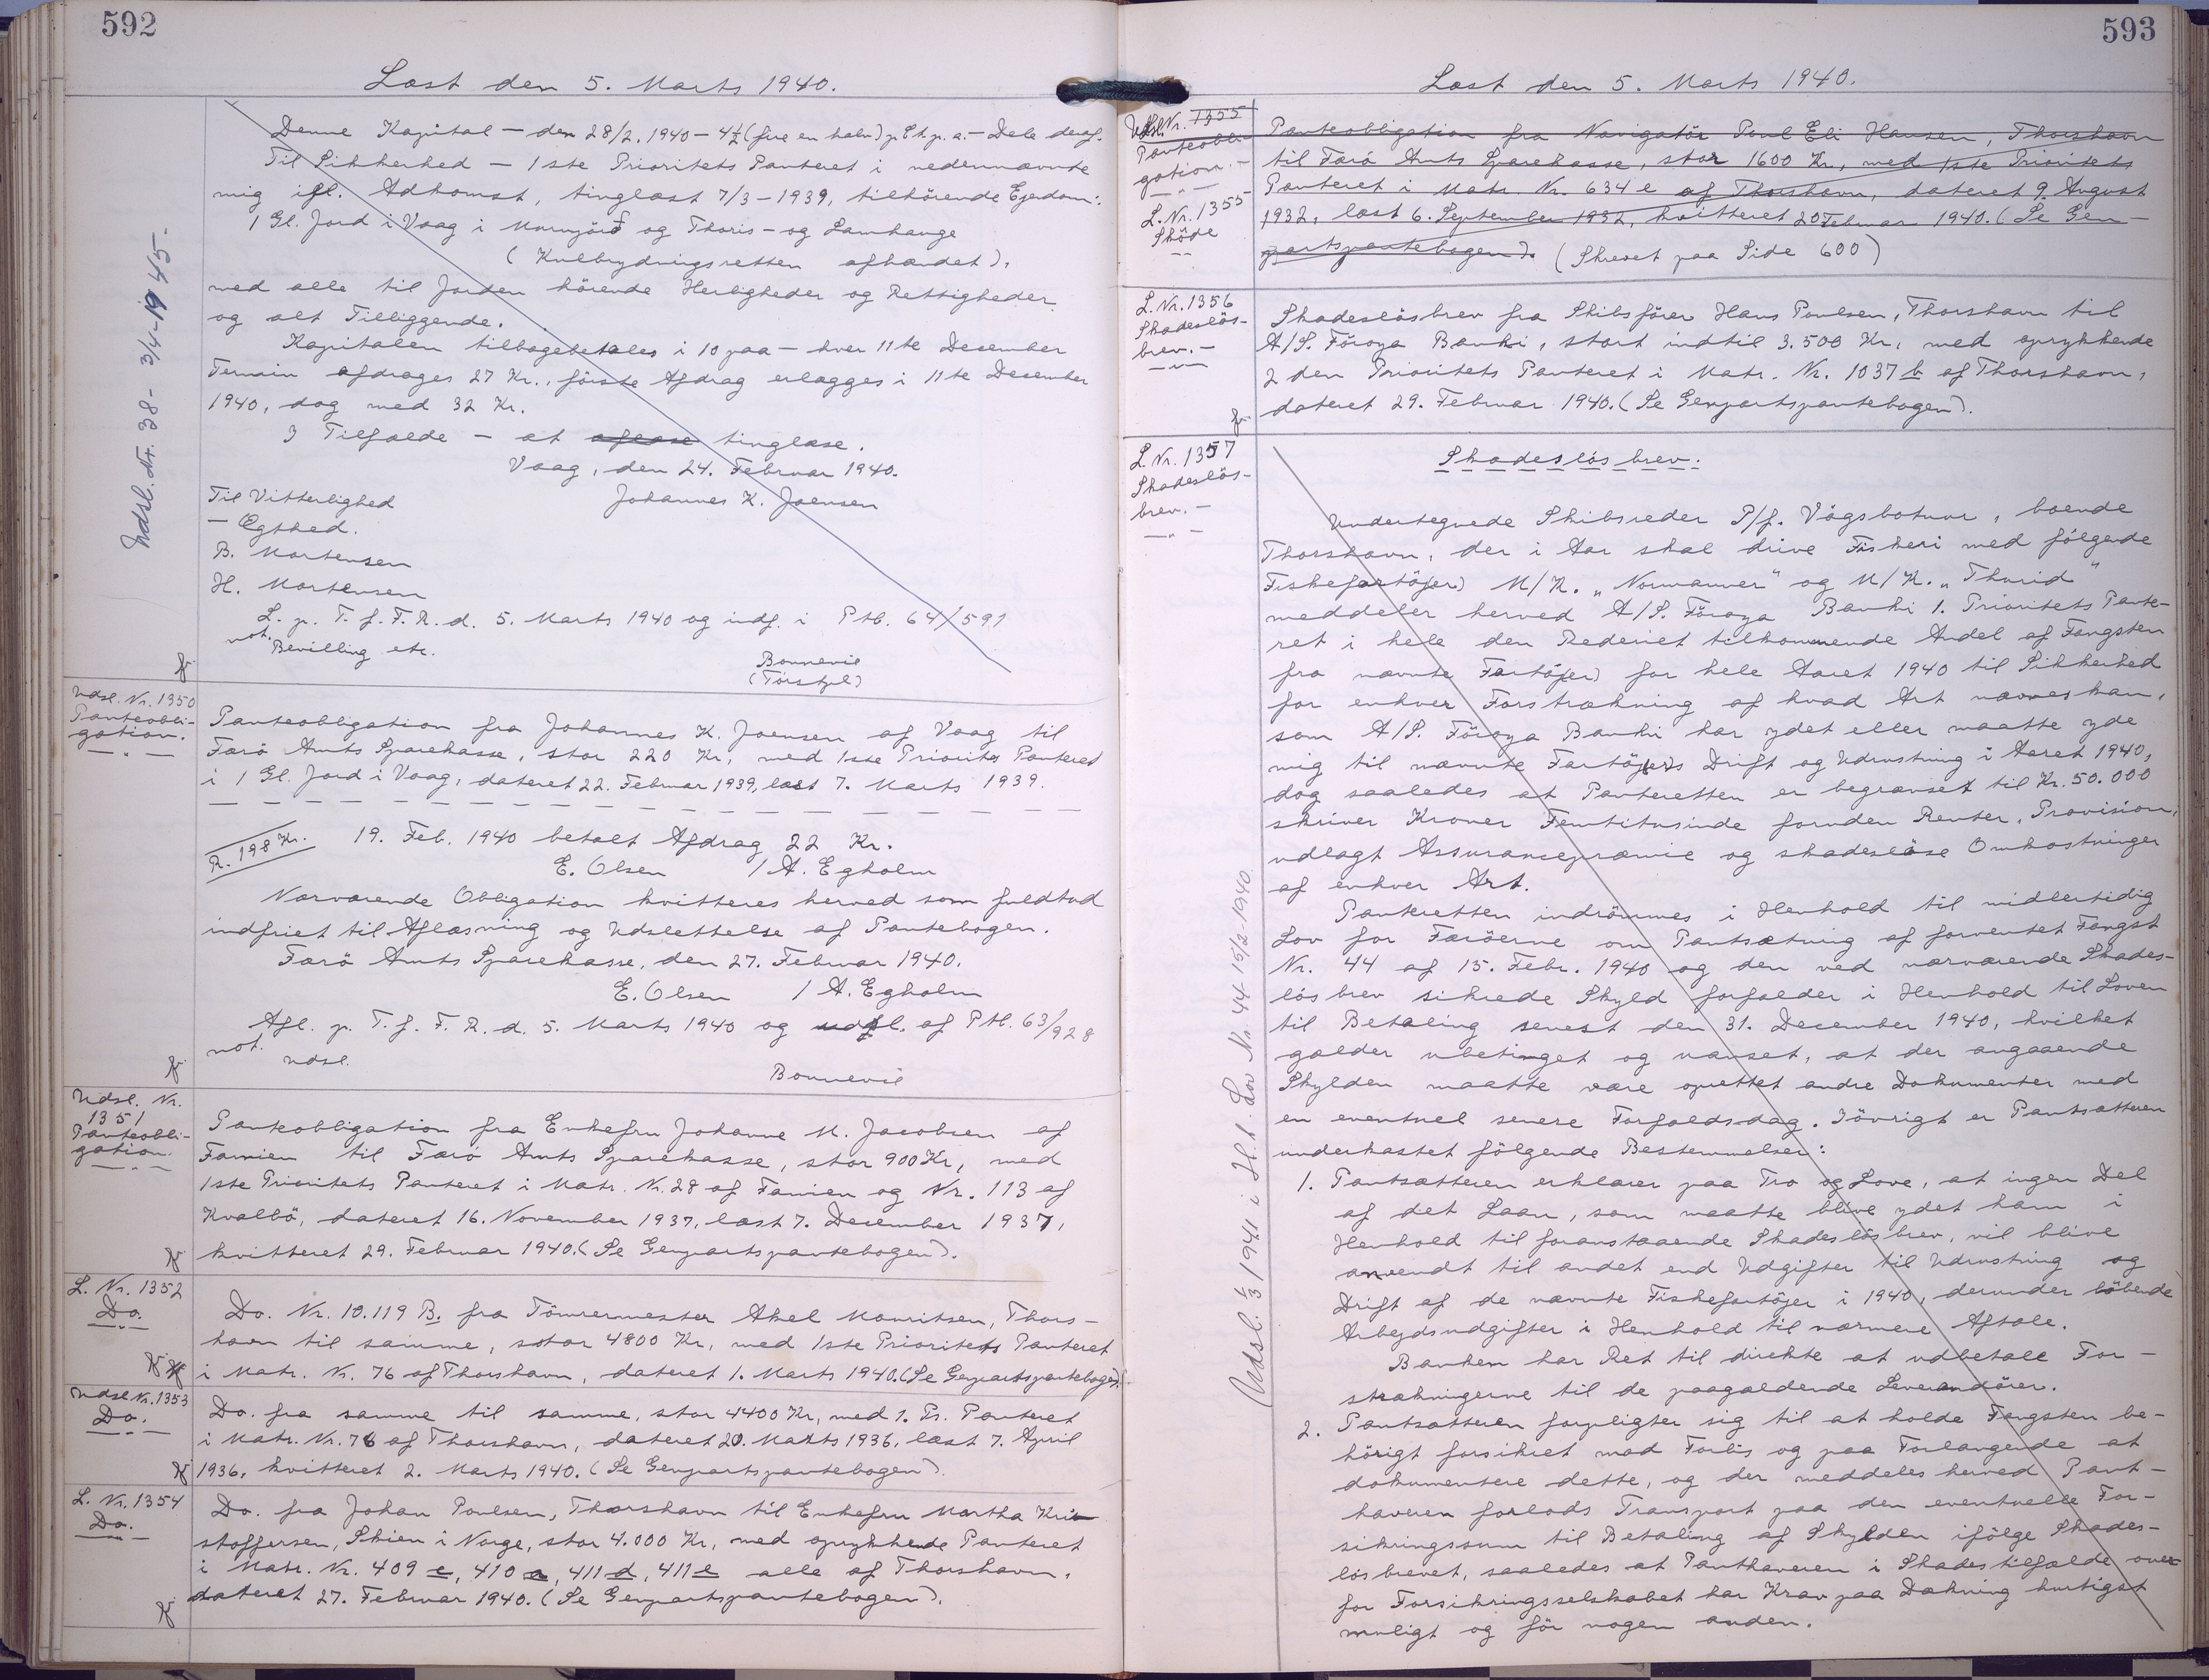 592
Læst den 5. Marts 1940.
Denne Kapital — den 28/2. 1940 — 4½ (fire en halv) p Ct. p. a. — Dele deraf.
Til Sikkerhed — 1ste Prioritets Panteret i nedennævnte
mig ifl. Adkomst, tinglæst 7/3 - 1939, tilhörende Ejendom:
1 Gl. Jord i Vaag i og Thoris - og Lamhauge
(Kulbrydningsretten afhændet).
med alle til Jorden hörende Herligheder og Rettigheder
og alt Tilliggende.
Kapitalen tilbagebetales i 10 paa — hver 11te December
Termin afdrages 27 Kr., förste Afdrag erlægges i 11te December
1940, dog med 32 Kr.
I Tilfælde — at aflæse tinglæse.
Vaag, den 24. Februar 1940.
Johannes K. Joensen
Til Vitterlighed
— Ægthed.
B. Mortensen
H. Mortensen
L. p. T. f. F. R. d. 5. Marts 1940 og indf. i Ptb. 64/591
not. Bevilling etc.
Bonnevie
(Törsfjel)
Udsl. Nr. 38 - 3/4 - 1945.
Udsl. Nr. 1350
Panteobli-
gation.
Panteobligation fra Johannes K. Joensen af Vaag til
Færö Amts Sparekasse, stor 220 Kr, med 1ste Priorits Panteret
i 1 Gl. Jord i Vaag, dateret 22. Februar 1939, læst 7. Marts 1939.
R. 198 Kr.
19. Feb. 1940 betalt Afdrag 22 Kr.
E. Olsen / A. Egholm
Nærværende Obligation kvitteres herved som fuldtud
indfriet til Aflæsning og Udslettelse af Pantebogen.
Færö Amts Sparekasse, den 27. Februar 1940.
E. Olsen / A. Egholm
Afl. p. T. f. F. R. d. 5. Marts 1940 og udsl. af Ptb. 63/928
not. udsl.
Bonnevie
Udsl. Nr.
1351
Panteobli-
gation.
Panteobligation fra Enkefru Johanne M. Jacobsen af
Famien til Færö Amts Sparekasse, stor 900 Kr, med
1ste Prioritets Panteret i Matr. Nr. 28 af Famien og Nr. 113 af
Kvalbö, dateret 16. November 1937, læst 7. December 1937,
kvitteret 29. Februar 1940. (Se Genpartspantebogen).
L. Nr. 1352
Do.
Do. Nr. 10.119 B. fra Tömrermester Axel Mouritsen, Thors-
havn til samme, stor 4800 Kr, med 1ste Prioritets Panteret
i Matr. Nr. 76 af Thorshavn, dateret 1. Marts 1940. (Se Genpartspantebogen).
Udsl Nr. 1353
Do.
Do. fra samme til samme, stor 4400 Kr, med 1. Pr. Panteret
i Matr. Nr. 76 af Thorshavn, dateret 20. Marts 1936, læst 7. April
1936, kvitteret 2. Marts 1940. (Se Genpartspantebogen).
L. Nr. 1354
Do.
Do. fra Johan Poulsen, Thorshavn til Enkefru Martha Kri-
stoffersen, Skien i Norge, stor 4.000 Kr, med oprykkende Panteret
i Matr. Nr. 409 e, 410 a, 411 d, 411 e alle af Thorshavn,
dateret 27. Februar 1940. (Se Genpartspantebogen).
593
Læst den 5. Marts 1940.
Udsl. Nr. 1355
Panteobli-
gation. -
L. Nr. 1355
Sköde
Panteobligation fra Navigatör Poul Eli Hansen, Thorshavn
til Færö Amts Sparekasse, stor 1600 Kr, med 1ste Prioritets
Panteret i Matr. Nr. 634 e af Thorshavn, dateret 9. August
1932, læst 6. September 1932, kvitteret 20 Februar 1940. (Se Gen-
partspantebogen). (Skrevet paa Side 600)
L. Nr. 1356
Skadeslös-
brev. -
Skadeslösbrev fra Skibsförer Hans Poulsen, Thorshavn til
A/S. Föroya Banki, stort indtil 3.500 Kr, med oprykkende
2 den Prioritets Panteret i Matr. Nr. 1037 b af Thorshavn,
dateret 29. Februar 1940. (Se Genpartspantebogen).
L. Nr. 1357
Skadeslös-
brev. -
Skadeslösbrev.
Undertegnede Skibsreder P/f. Vágsbotnur, boende
Thorshavn, der i Aar skal drive Fiskeri med fölgende
Fiskefartöj(er) M/K. „Normanner" og M/K. „Thurid"
meddeler herved A/S. Föroya Banki 1. Prioritets Pante-
ret i hele den Rederiet tilkommende Andel af Fangsten
fra nævnte Fartöj(er) for hele Aaret 1940 til Sikkerhed
for enhver Forstrækning af hvad Art nævnes kan,
som A/S. Föroya Banki har ydet eller maatte yde
mig til nævnte Fartöj(er)s Drift og Udrustning i Aaret 1940,
dog saaledes at Panteretten er begrænset til Kr. 50.000
skriver Kroner Femtitusinde foruden Renter, Provision,
udlagt Assurancepræmie og skadeslöse Omkostninger
af enhver Art.
Panteretten indrömmes i Henhold til midlertidig
Lov for Færöerne om Pantsætning af forventet Fangst
Nr. 44 af 15. Febr. 1940 og den ved nærværende Skades-
lösbrev sikrede Skyld forfalder i Henhold til Loven
til Betaling senest den 31. December 1940, hvilket
gælder ubetinget og uanset, at der angaaende
Skylden maatte være oprettet andre Dokumenter med
en eventuel senere Forfaldsdag. Iövrigt er Pantsætteren
underkastet fölgende Bestemmelser:
1. Pantsætteren erklærer paa Tro og Love, at ingen Del
af det Laan, som maatte blive ydet ham i
Henhold til foranstaaende Skadeslösbrev, vil blive
anvendt til andet end Udgifter til Udrustning og
Drift af de nævnte Fiskefartöjer i 1940, derunder löbende
Arbejdsudgifter i Henhold til nærmere Aftale.
Banken har Ret til direkte at udbetale For-
strækningerne til de paagældende Leverandörer.
2. Pantsætteren forpligter sig til at holde Fangsten be-
hörigt forsikret mod Forlis og paa Forlangende at
dokumentere dette, og der meddeles herved Pant-
haveren forlods Transport paa den eventuelle For-
sikringssum til Betaling af Skylden ifölge Skades-
lösbrevet, saaledes at Panthaveren i Skadestilfælde over
for Forsikringsselskabet har Krav paa Dækning hurtigst
muligt og för nogen anden.
(Udsl. 1/3 1941 i H. t. Lov Nr 44 15/2-1940.